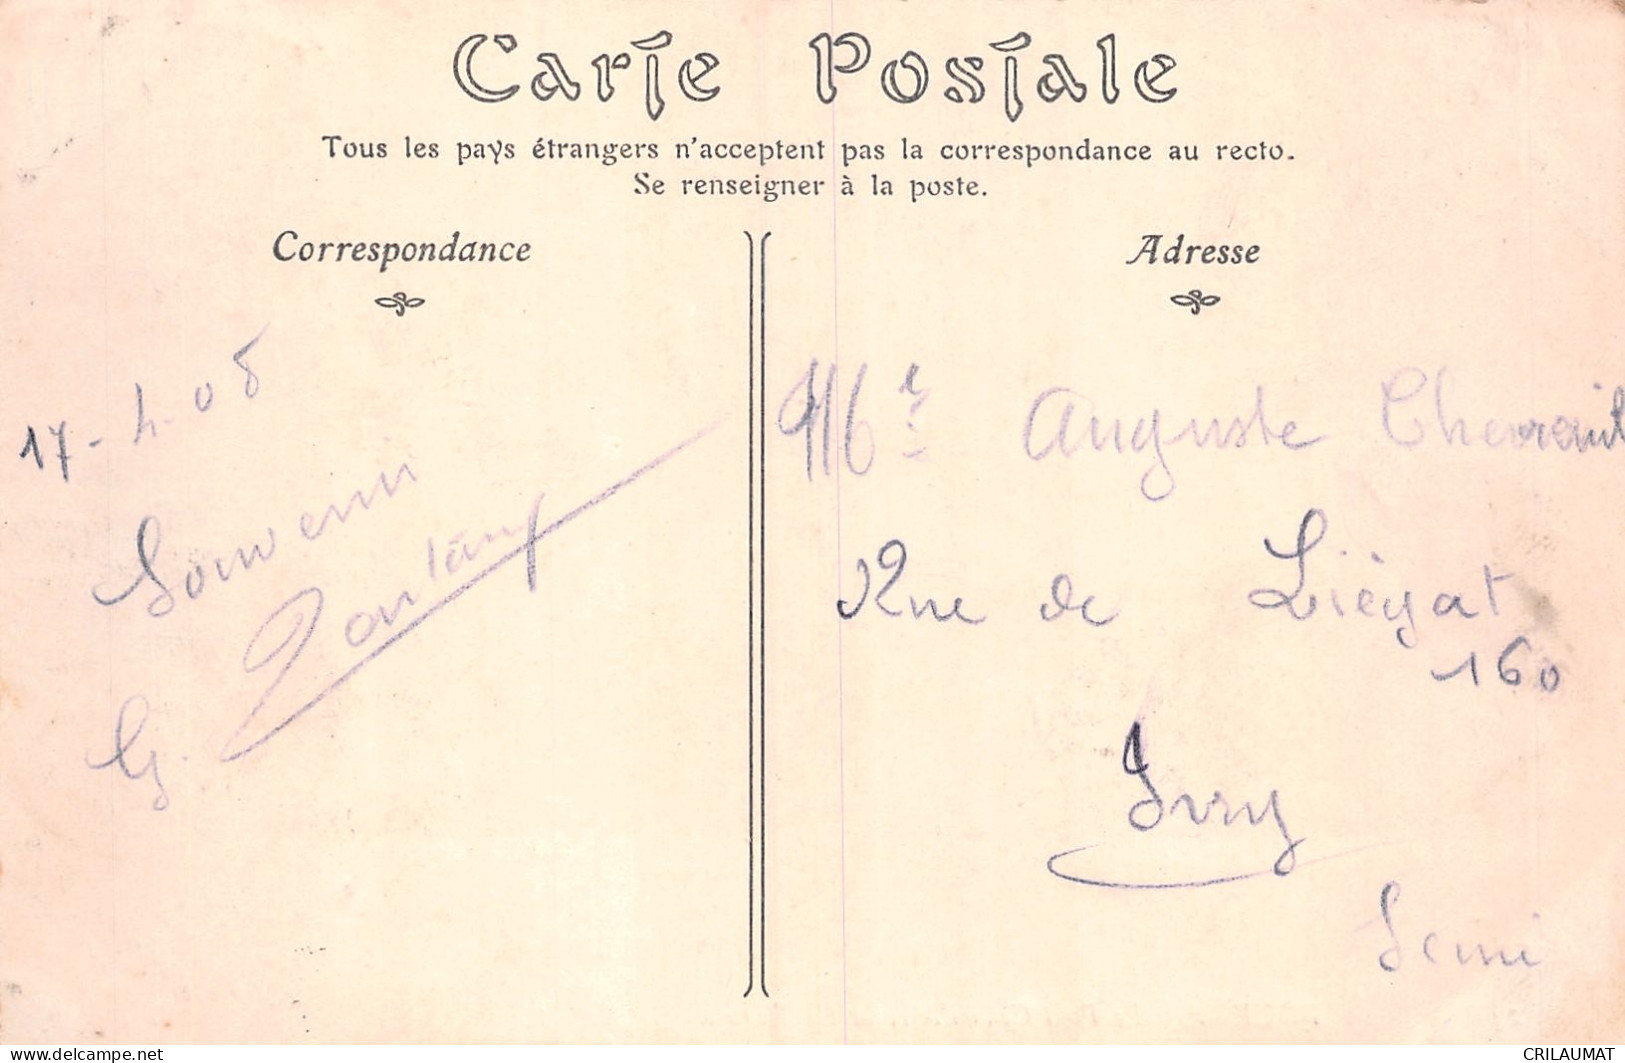 Carte Postale
Tous les pays étrangers n'acceptent pas la correspondance au recto.
Se renseigner à la poste.
Correspondance
Adresse
17-4-08
Souvenir
G.
Mr Auguste Chevreuil
Rue de Liégat
160
Ivry
Seine
delcampe.net
CRILAUMAT